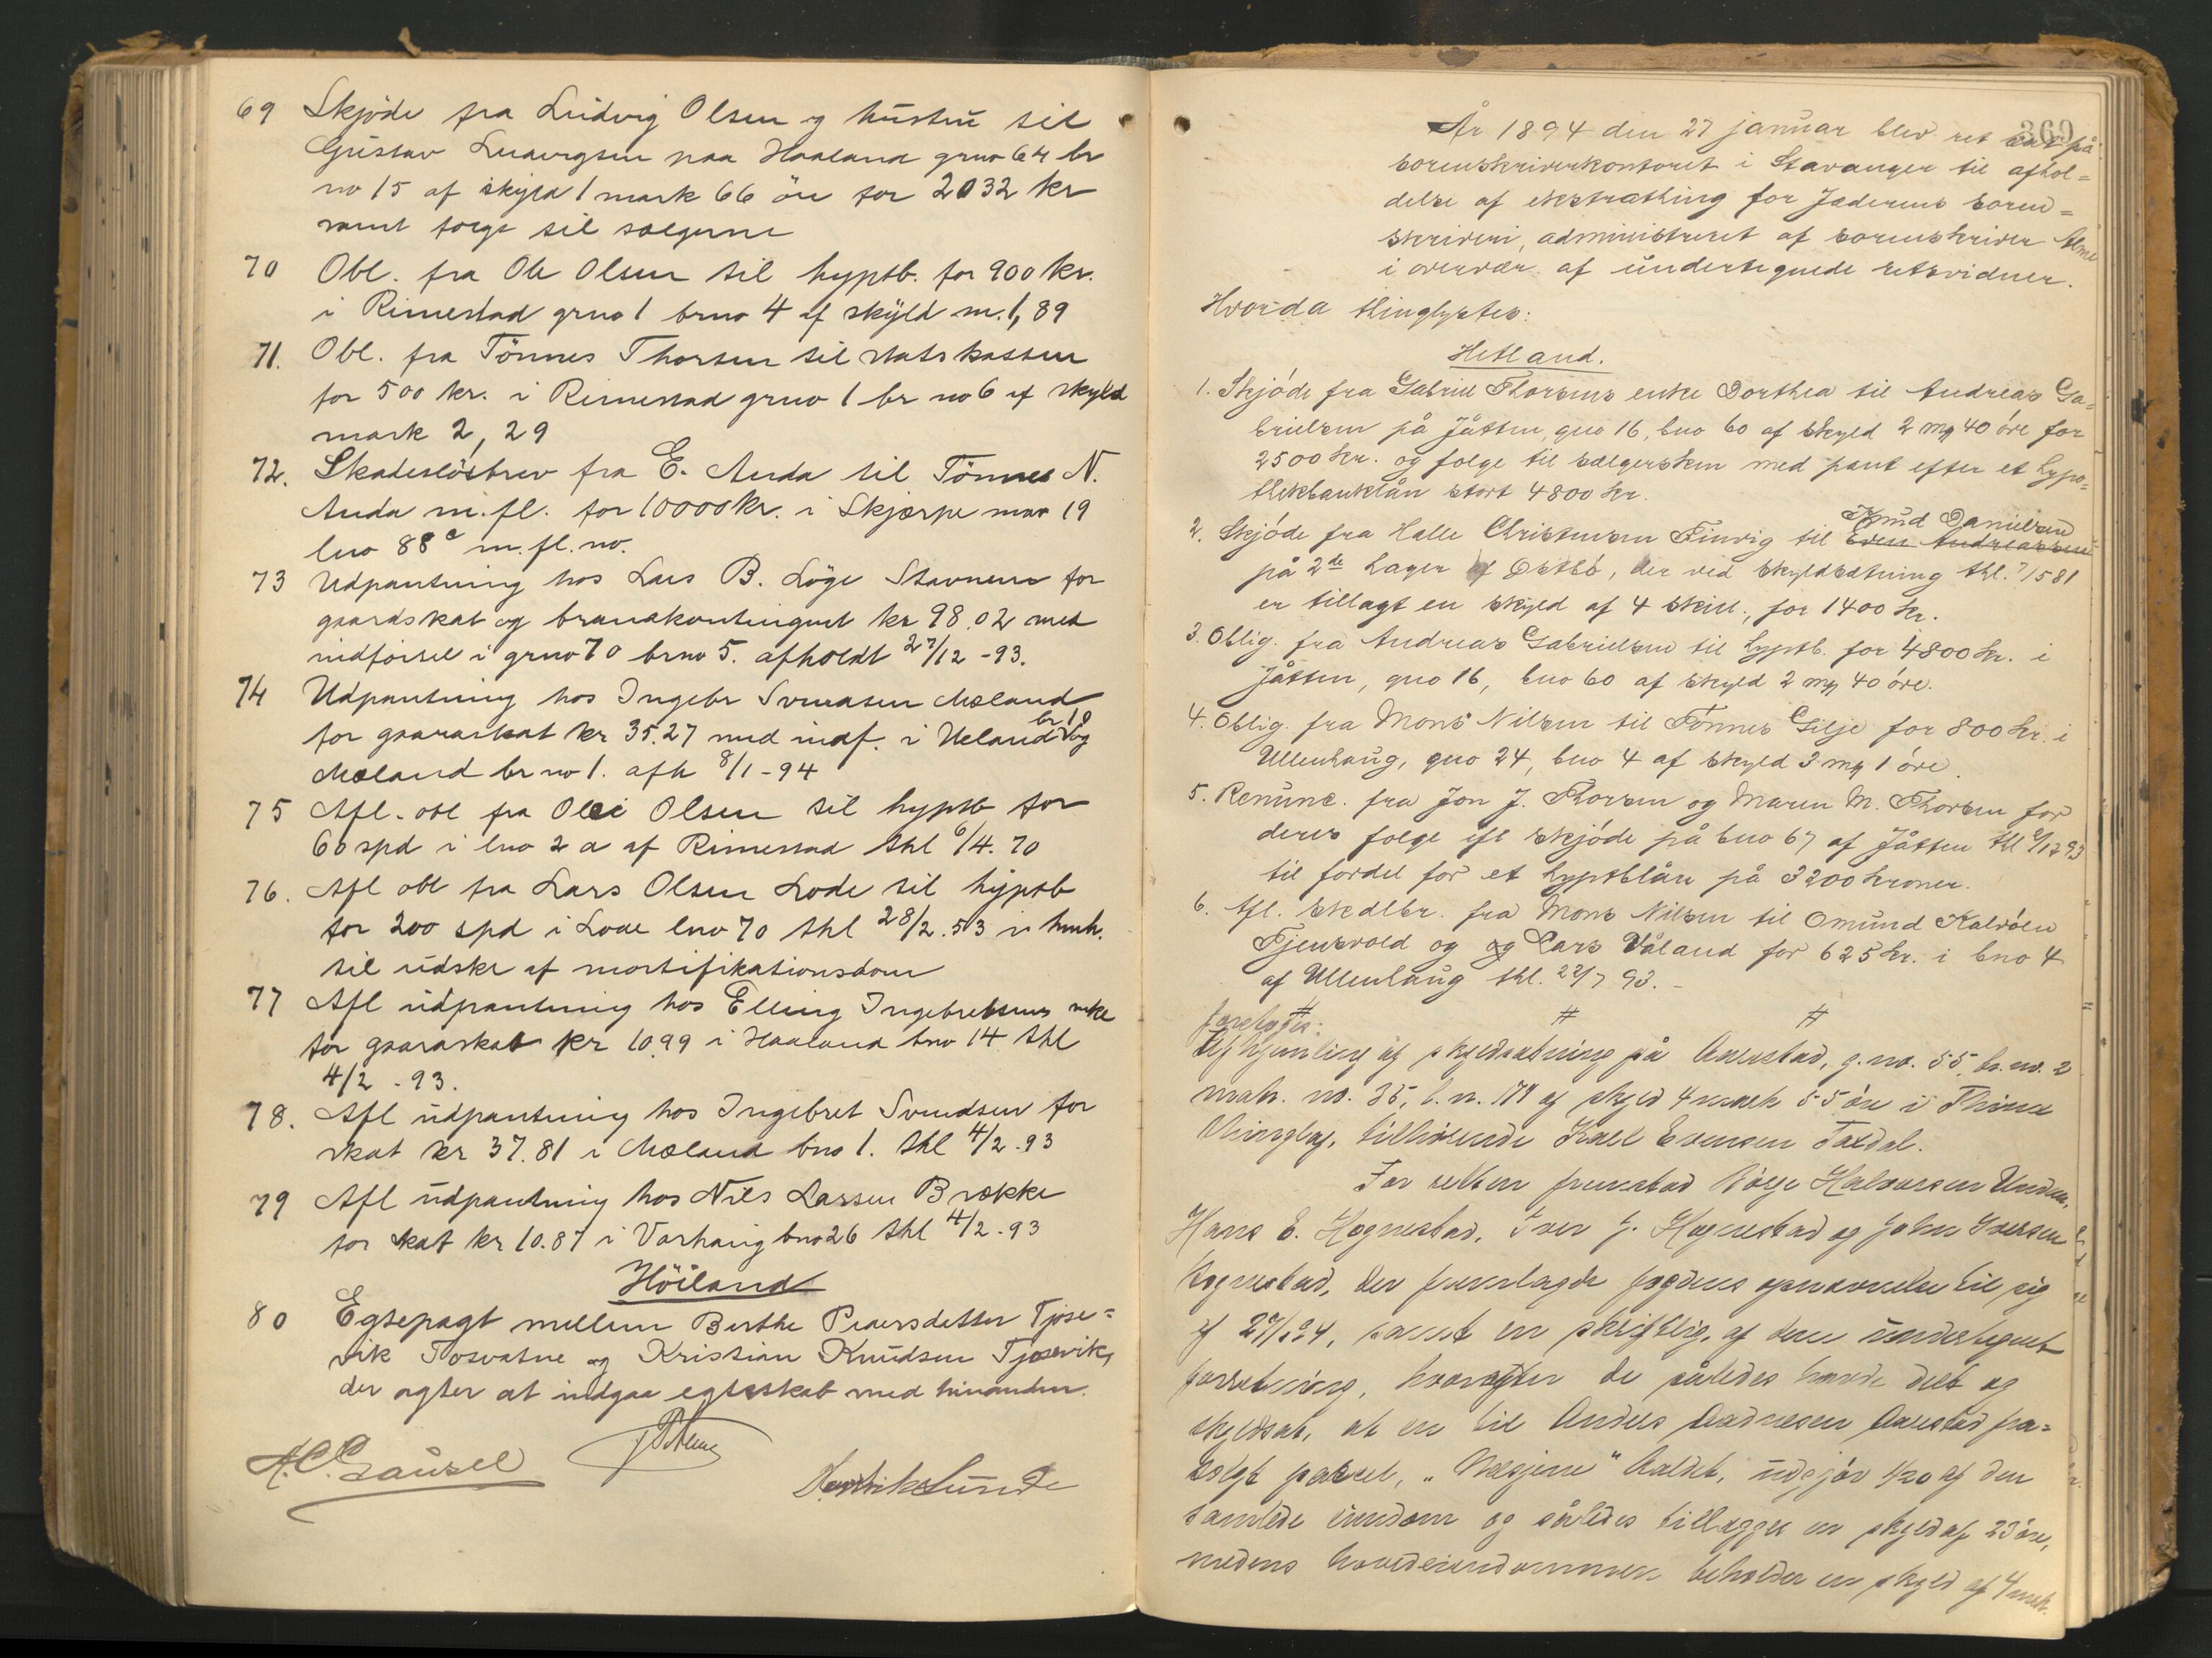 69 Skjöde fra Ludvig Olsen og hustru til
Gustav Ludvigsen paa Haaland grno 64 br
no 15 af skyld 1 mark 66 öre for 2032 kr
samt forge til sælgerne
70 Obl. fra Ole Olsen til hyptb. for 900 kr.
i Rimestad grno 1 brno 4 af skyld m. 1,89
71. Obl. fra Tönnes Thorsen til statskassen
for 500 kr. i Rimestad grno 1 br no 6 af skyld
mark 2,29
72. Skadeslösbrev fra E. Auda til Tönnes N.
Auda m.fl. for 10000 kr. i Skjærpe mno 19
lno 88c m.fl.no.
73 Udpantning hos Lars B. Löge Stavnem for
gaardskat og brandkontingent kr 98.02 med
indförsel i grno 70 brno 5. afholdt 27/12 -93.
74 Udpantning hos Ingebr Svendsen Mæland
for gaardskat kr 35.27 med indf. i Ueland br 18 og
Mæland br no 1. afh 8/1-94
75 Afl. obl fra Olei Olsen til hyptb for
60 spd i lno 2 a af Rimestad thl 6/4.70
76. Afl obl fra Lars Olsen Lode til hyptb
for 200 spd i Lode lno 70 thl 28/2.53 i hmh.
til udskr af mortifikationsdom
77 Afl udpantning hos Elling Ingebretsens enke
for gaardskat kr 10.99 i Haaland bno 14 thl
4/2 -93.
78. Afl udpantning hos Ingebret Svendsen for
skat kr 37.81 i Mæland bno 1. thl 4/2.93
79 Afl udpantning hos Nils Larsen Brække
for skat kr 10.87 i Varhaug bno 26 thl 4/2-93
Höiland
80 Egtepagt mellem Berthe Pedersdatter Tjose=
vik Tosvatne og Kristian Knudsen Tjosevik,
der agter at indgaa egteskab med hinanden.
A.C. Gausel
Hendrik Sunde
369
År 1894 den 27 januar blev ret sat på
sorenskriverkontoret i Stavanger til afhol=
delse af ekstrathing for Jæderens soren=
skriveri, administreret af sorenskriver
i overvær af undertegnede retsvidner.
Hvorda thinglystes:
Hetland.
1. Skjöde fra Gabriel Thorsens enke Dorthea til Andreas Ga=
brielsen på Jåtten, gno 16, bno 60 af skyld 2 mk 40 öre for
2500 kr. og folge til sælgersken med pant efter et hypo=
thekbanklån stort 4800 kr.
Knud Danielsen
2. Skjöde fra Halle Christensen Finvig til Even Andreassen
på 2de Lager af Östbö, der ved skyldsætning thl. 7/1581
er tillagt en skyld af 4 skill., for 1400 kr.
3. Oblig. fra Andreas Gabrielsen til hyptb. for 4800 kr. i
Jåtten, gno 16, bno 60 af skyld 2 mk 40 öre.
4. Oblig. fra Mons Nilsen til Tönnes Gilje for 800 kr. i
Ullenhaug, gno 24, bno 4 af skyld 3 mk 1 öre.
5. Renunc. fra Jon J. Thorsen og Maren M. Thorsen for
deres folge ifl skjöde på bno 67 af Jåtten thl 2/12 93
til fordel for et hyptblån på 3200 kroner.
6. Afl. skdlbr. fra Mons Nilsen til Omund Kalvölen
Tjensvold og og Lars Våland for 625 kr. i bno 4
af Ullenhaug thl. 22/7 93. -
foretoges:
Afhjemling af skyldsætning på Aarestad, g.no. 55, br.no. 2
matr. no. 35, l.n. 179 af skyld 4 mark 55 öre i Thime
thinglag, tilhörende Karl Evensen Taxdal.
For retten fremstod Börge Halvorsen
Hans E. Hognestad, Iver J. Hognestad og John Iversen
Hognestad, der fremlagde fogdens opnævnelse til sig
af samt en skriftlig, af dem undertegnet
forretning, hvorefter de således havde delt og
skyldsat, at en til Anders Aadnesen Aarestad fra=
solgt parcel, "Mosjene" kaldet, udgjör 1/20 af den
samlede eiendom og således tillægges en skyld af 23 öre,
medens hovedeiendommen beholder en skyld af 4 mark